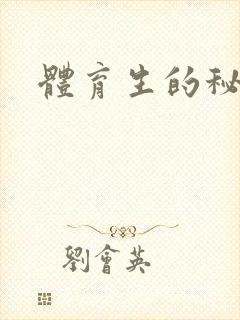 體育生的秘
劉會英